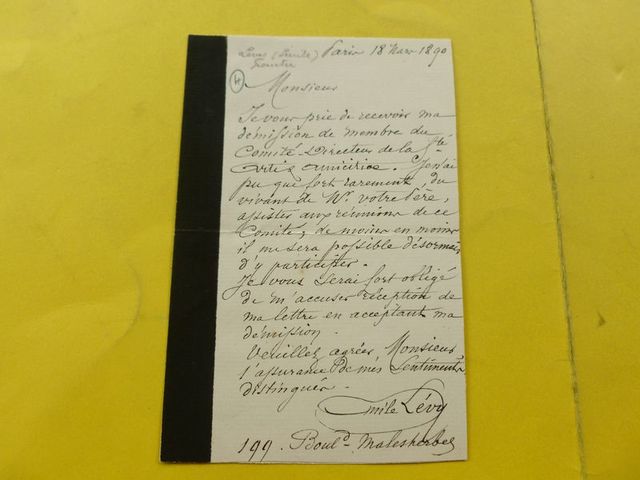 Levy (Emile) Paris 18 Mars 1890
Peintre
4
Monsieur
Je vous prie de recevoir ma
démission de membre du
Comité-Directeur de la Sté
Artis amicitiae. Je n'ai
pu que fort rarement, du
vivant de Mr votre Père,
assister aux réunions de ce
Comité; de moins en moins
il me sera possible désormais
d'y participer.
Je vous serai fort obligé
de m'accuser réception de
ma lettre en acceptant ma
démission.
Veuillez agréer, Monsieur,
l'assurance de mes Sentiments
distingués.
Emile Lévy
199. Bould Malesherbes